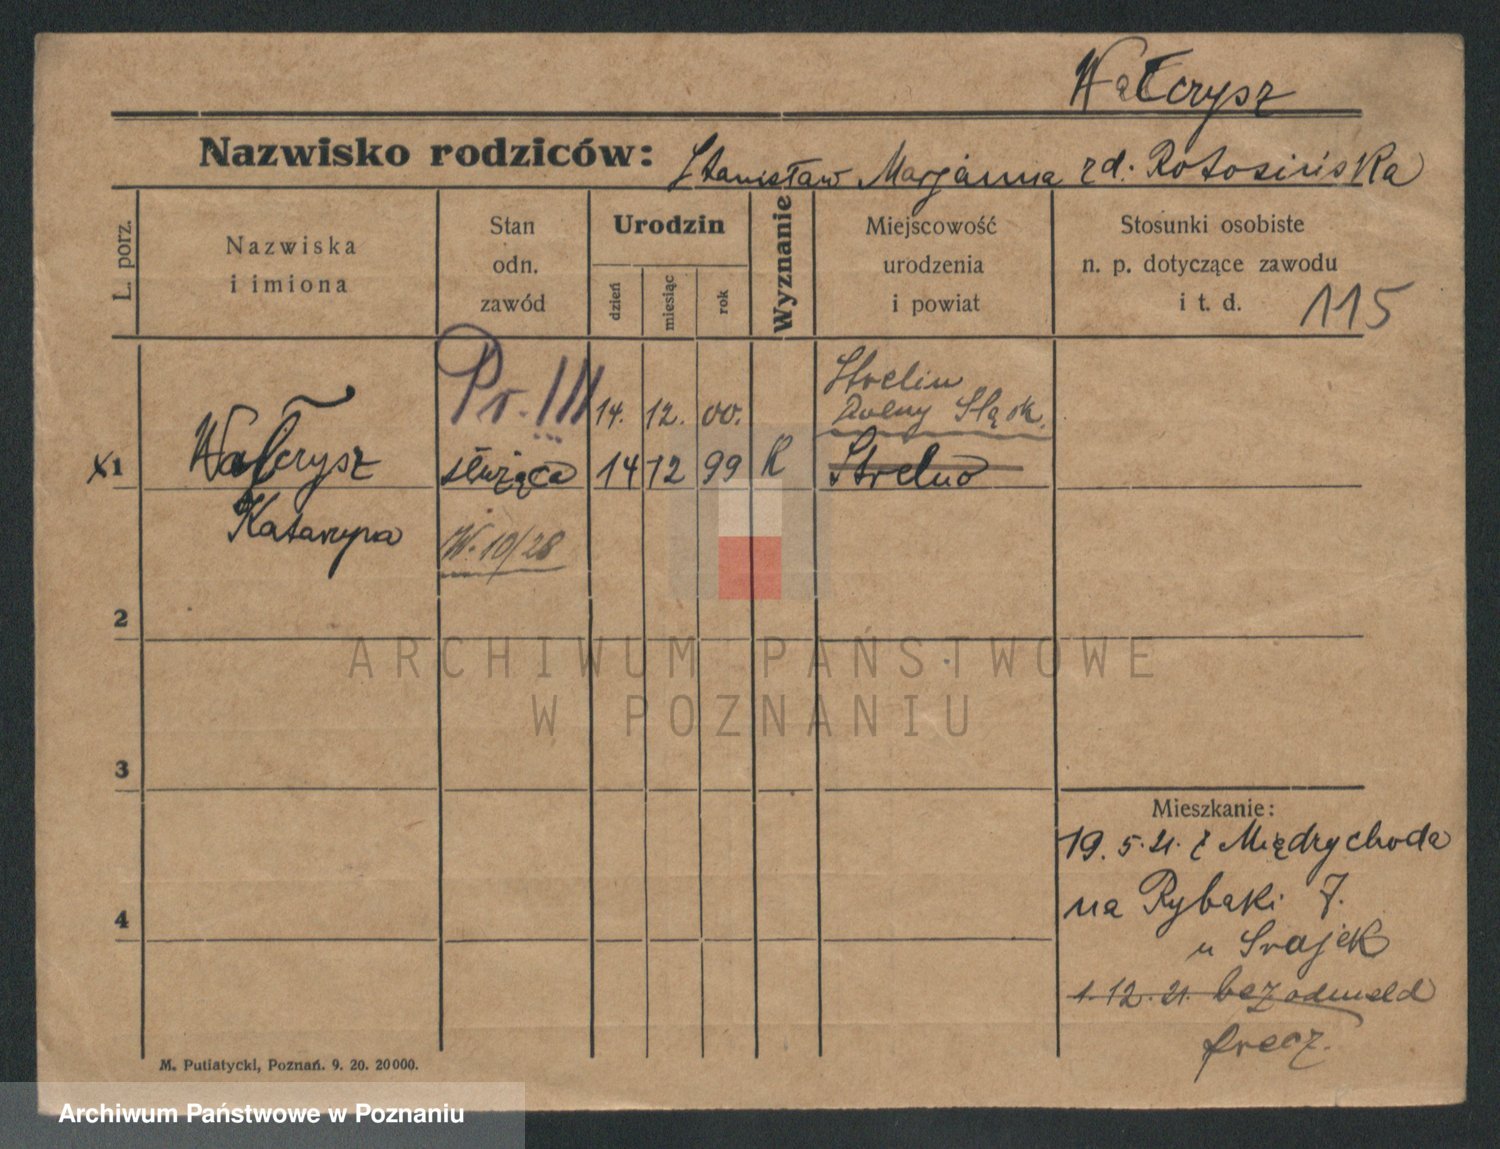 Wałcrysz
Nazwisko rodziców: Stanisław Marjanna zd. Rotosińska
L. porz.
Nazwiska
i imiona
Stan
odn.
zawód
Urodzin
dzień
miesiąc
rok
Wyznanie
Miejscowość
urodzenia
i powiat
Stosunki osobiste
n. p. dotyczące zawodu
i t. d.
115
Pr. III
14. 12. 00.
Strelin
Dolny Śląsk.
x1 Wałcrysz służąca 14 12 99 K Strelno
Katarzyna
W. 10/28
2
3
4
ARCHIWUM PAŃSTWOWE
W POZNANIU
Mieszkanie:
19. 5. 21. z Międzychoda
na Rybaki 7.
u Srajek
1. 12. 21. bez odmeld
precz.
M. Putiatycki, Poznań. 9. 20. 20000.
Archiwum Państwowe w Poznaniu